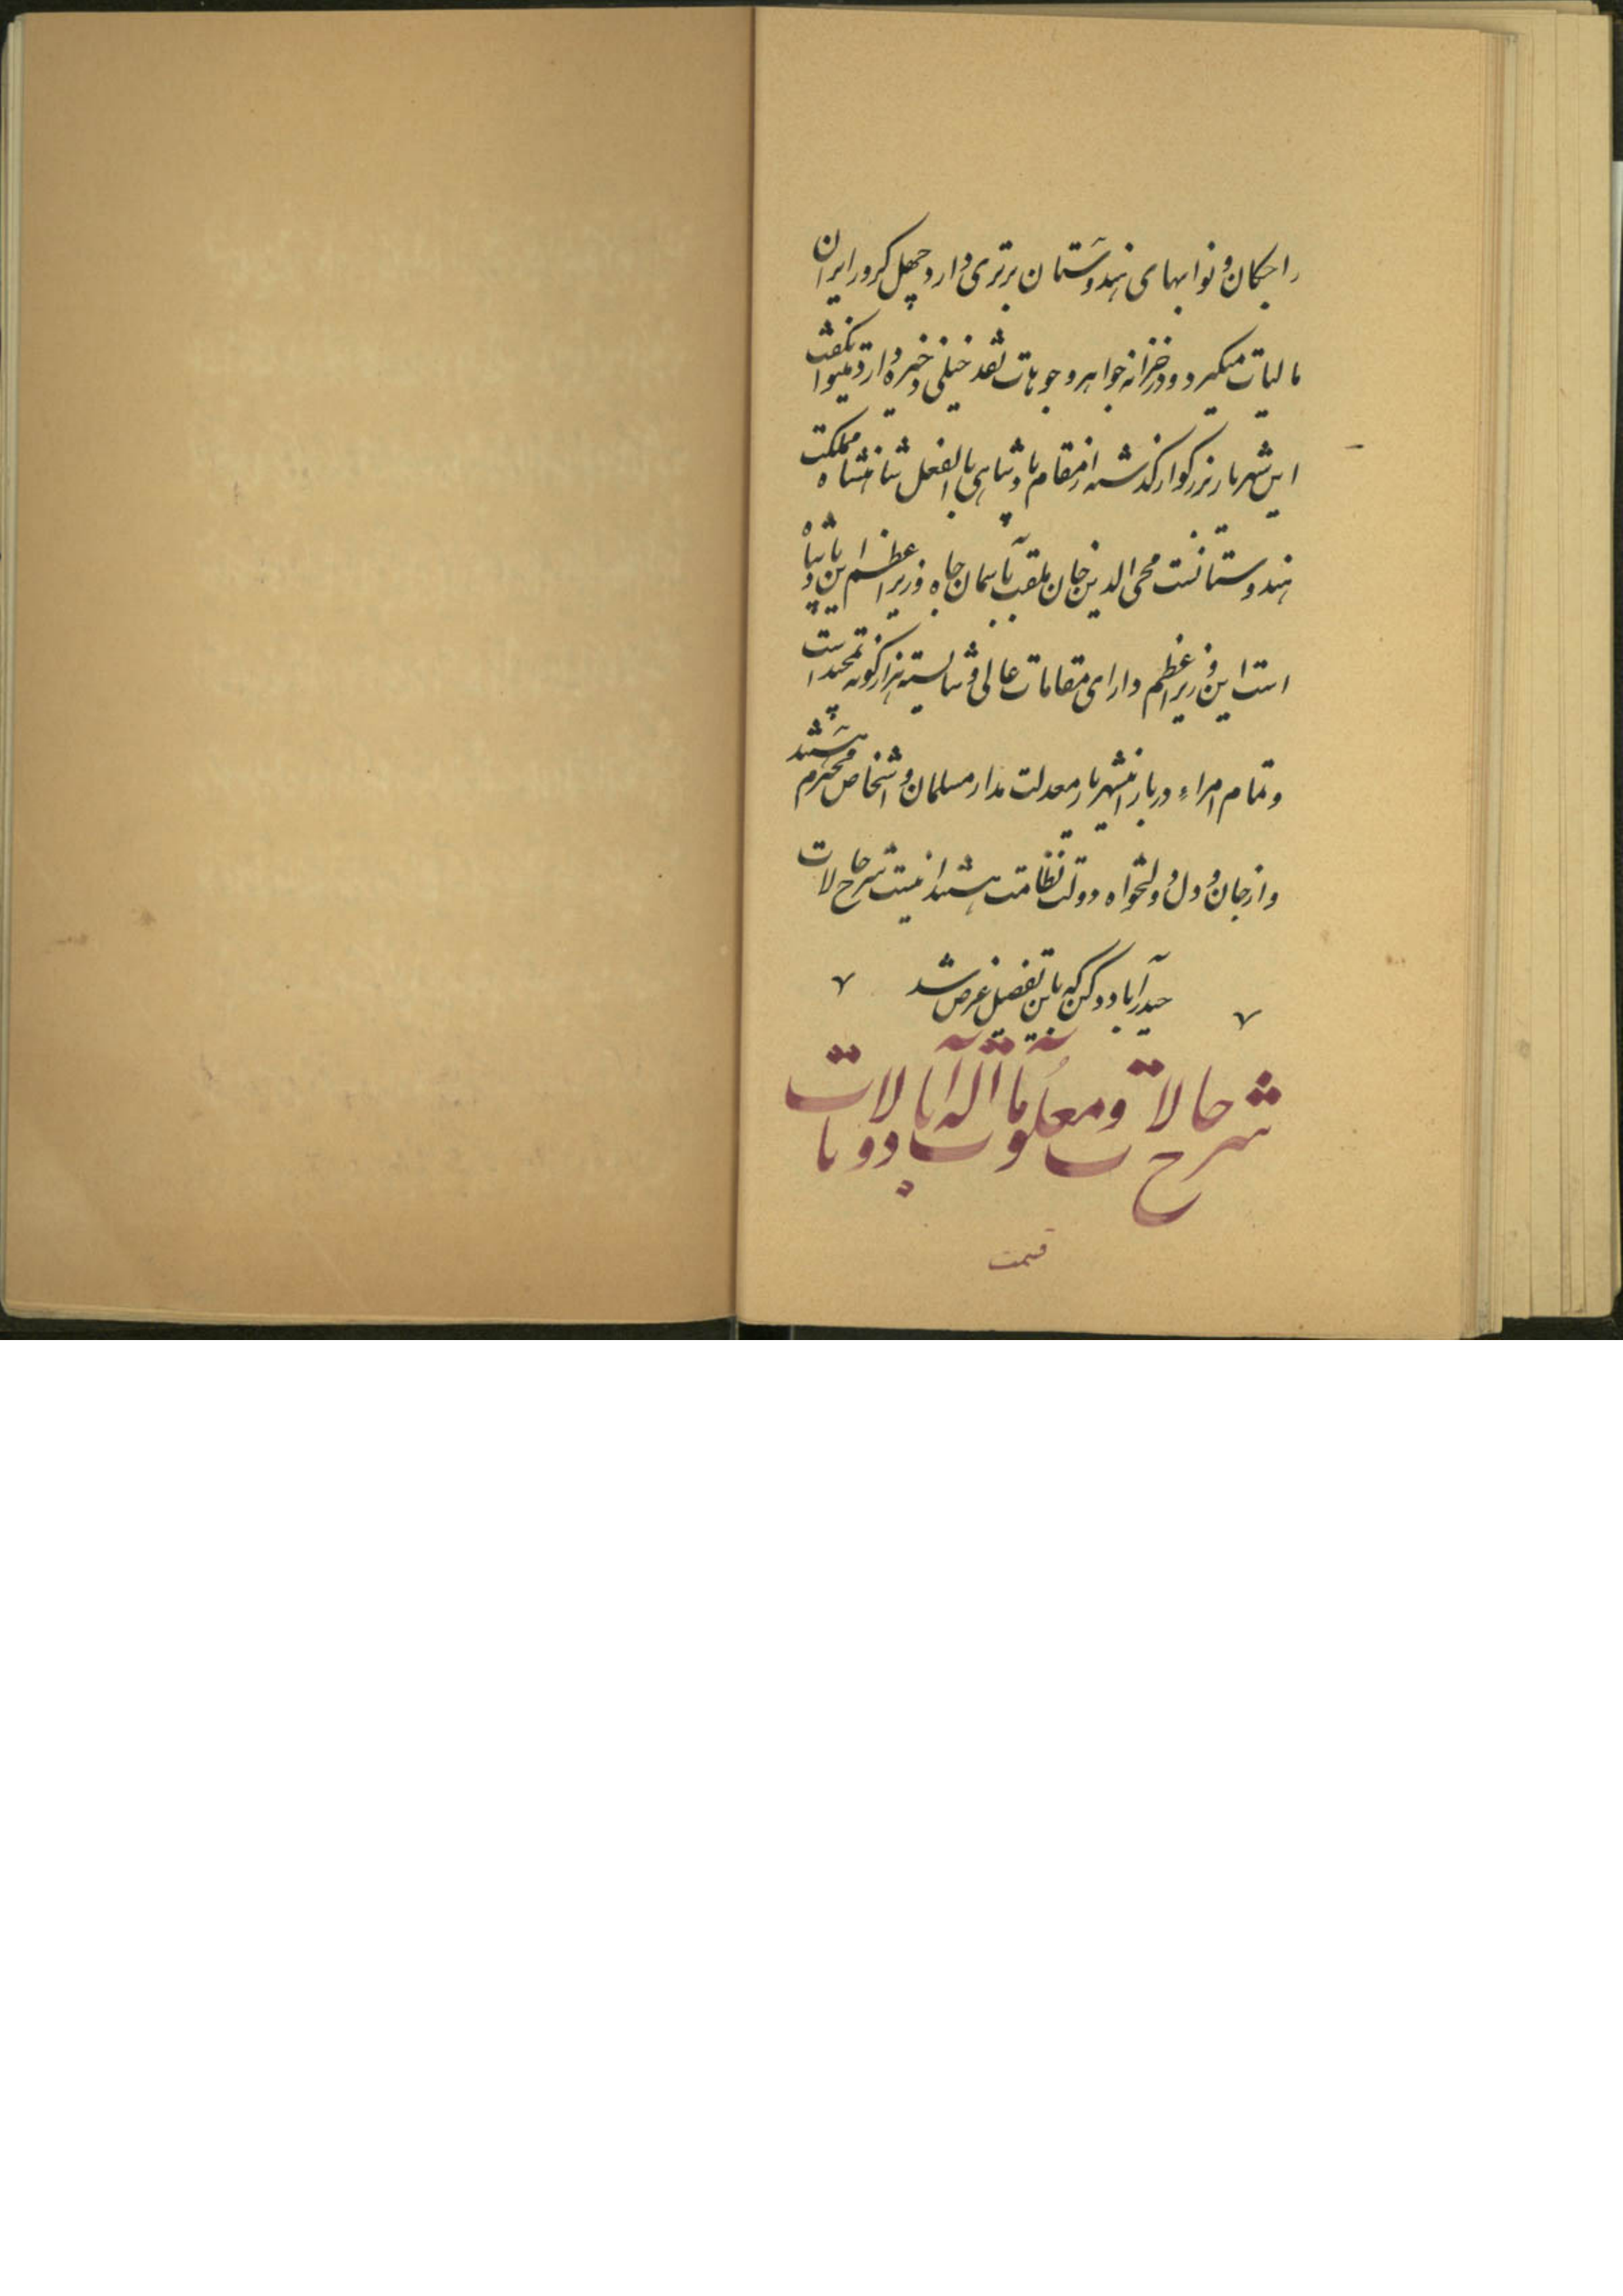 راجگان و نوابهای هندوستان برتری دارد و چهل کرور ایران
مالیات میگیرد و در خزانه جواهر و جوهات نقد خیلی ذخیره دارد میتوان گفت
این شهریار بزرگوار گذشته از مقام پادشاهی بالفعل شاهنشاه مملکت
هندوستانست محی الدین خان ملقب بآسمان جاه وزیر اعظم این پادشاه
است این وزیر اعظم دارای مقامات عالی و شایسته هزار گونه تمجید است
و تمام امراء دربار اینشهریار معدلت مدار مسلمان و اشخاص محترم هستند
و از جان و دل دولتخواه دولت نظامت هستند اینست شرح حالات
حیدرآباد دکن که باین تفصیل عرض شد
شرح حالات و معلومات اله آباد و بالات
قیمت